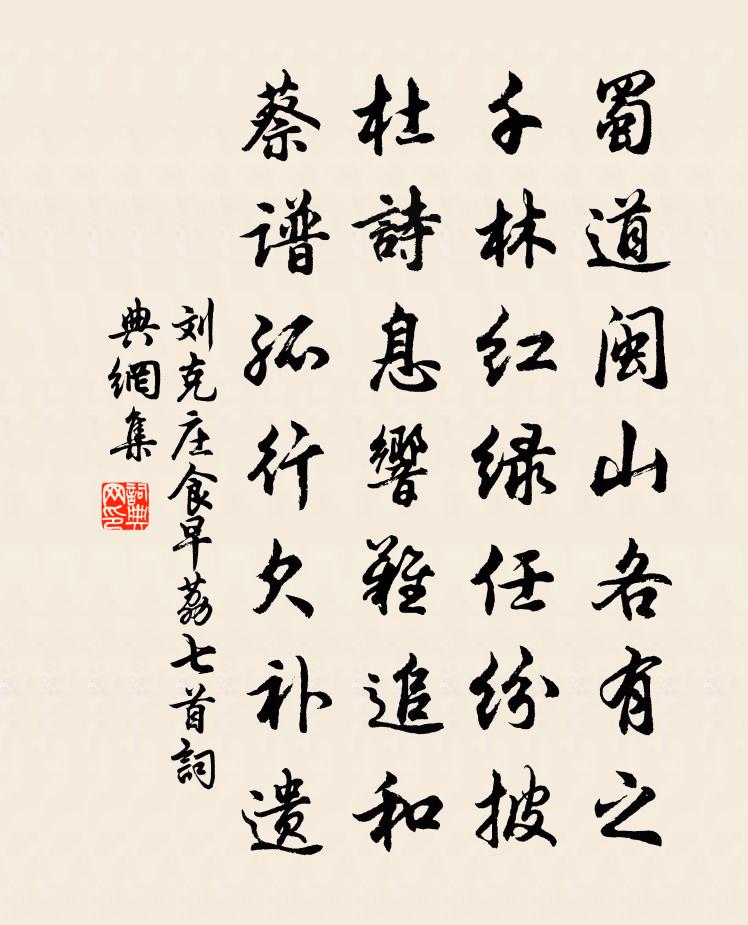 蜀道闽山各有之
千林红绿任纷披
杜詩息響難追和
蔡谱孤行欠补遗
刘克庄食早荔七首詞
典網集
詞典网印